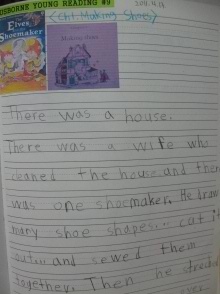 USBORNE YOUNG READING #9
2011.4.13
Elves
Shoemaker
<Ch1. Making Shoes>
Making shoes
There was a house.
There was a wife who
cleaned the house. and there
was one shoemaker. He draw
many shoe shapes.... cut it
out... and sewed them
together. Then he